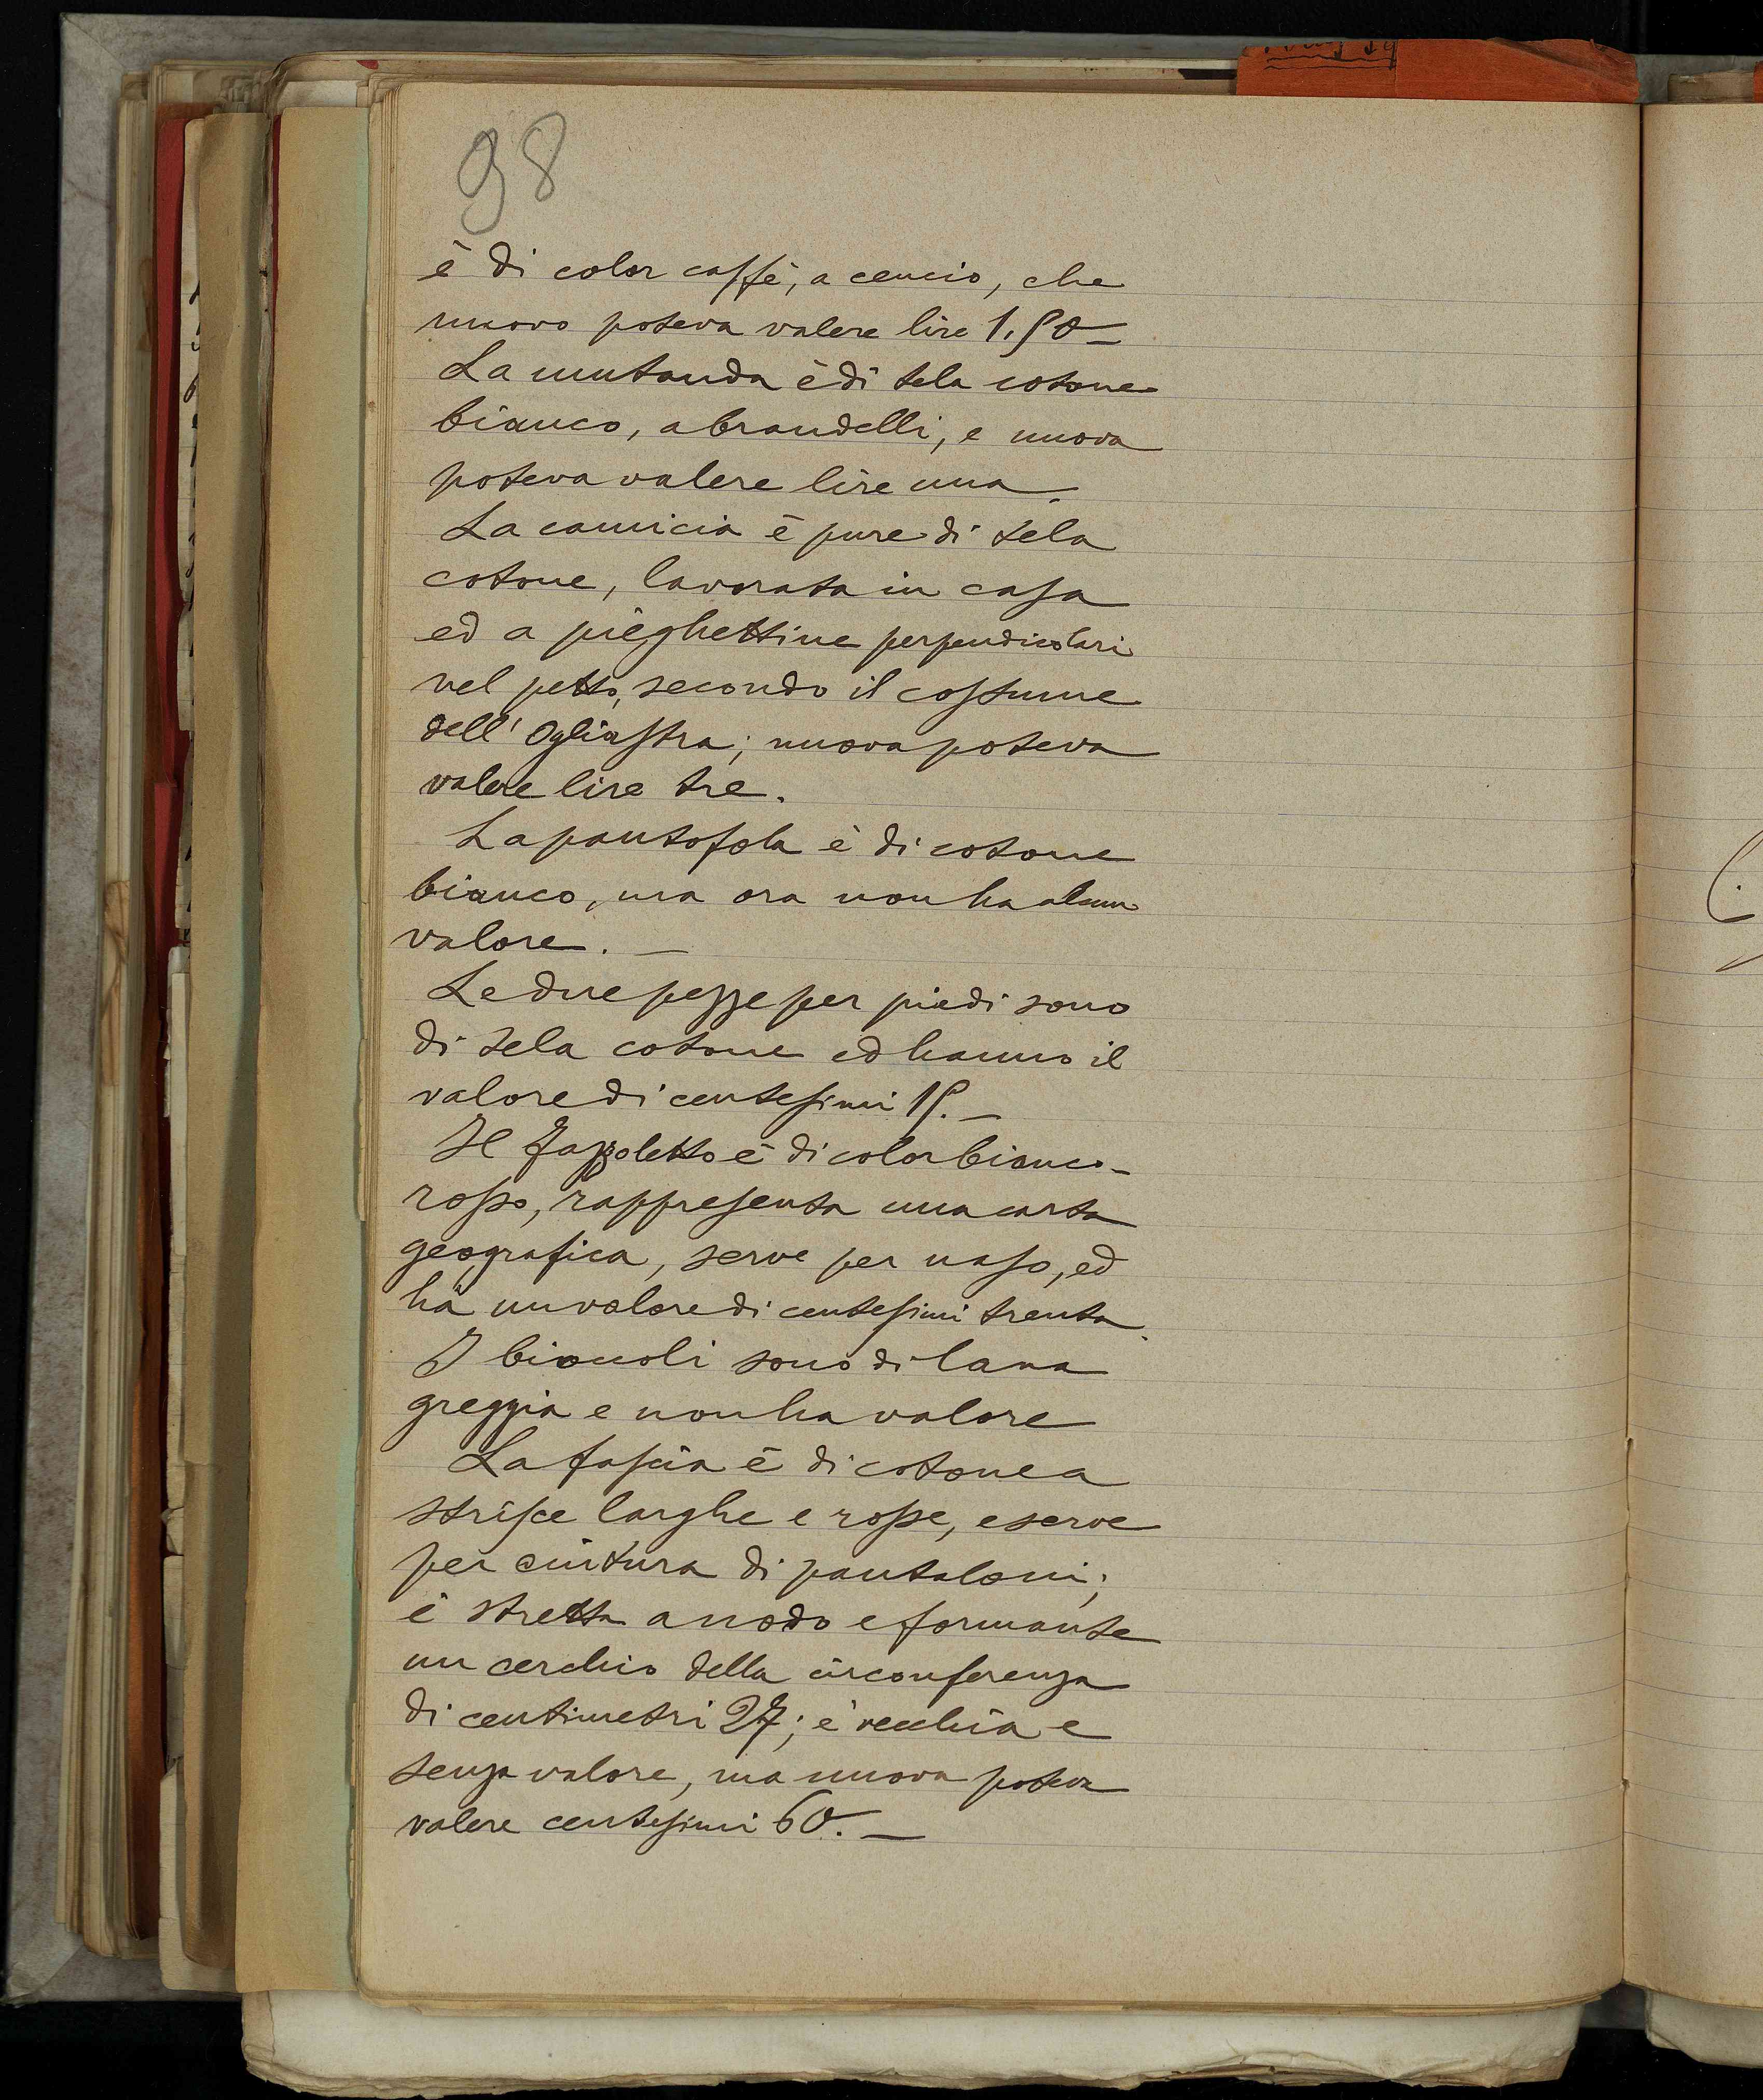 98
è di color caffè, a cencio, che
nuovo poteva valere lire 1.50 —
La mutanda è di tela cotone
bianco, a brandelli, e nuova
poteva valere lire una.
La camicia è pure di tela
cotone, lavorata in casa
ed a pieghettine perpendicolari
nel petto, secondo il costume
dell'Ogliastra; nuova poteva
valere lire tre.
La pantofola è di cotone
bianco, ma ora non ha alcun
valore. —
Le due pezze per piedi sono
di tela cotone ed hanno il
valore di centesimi 15. —
Il fazzoletto è di color bianco-
rosso, rappresenta una carta
geografica, serve per naso, ed
ha un valore di centesimi trenta.
I sono di lana
greggia e non ha valore
La fascia è di cotone a
strisce larghe e rosse, e serve
per cintura di pantaloni;
è stretta a nodo e formante
un cerchio della circonferenza
di centimetri 27; è vecchia e
senza valore, ma nuova poteva
valere centesimi 60. —